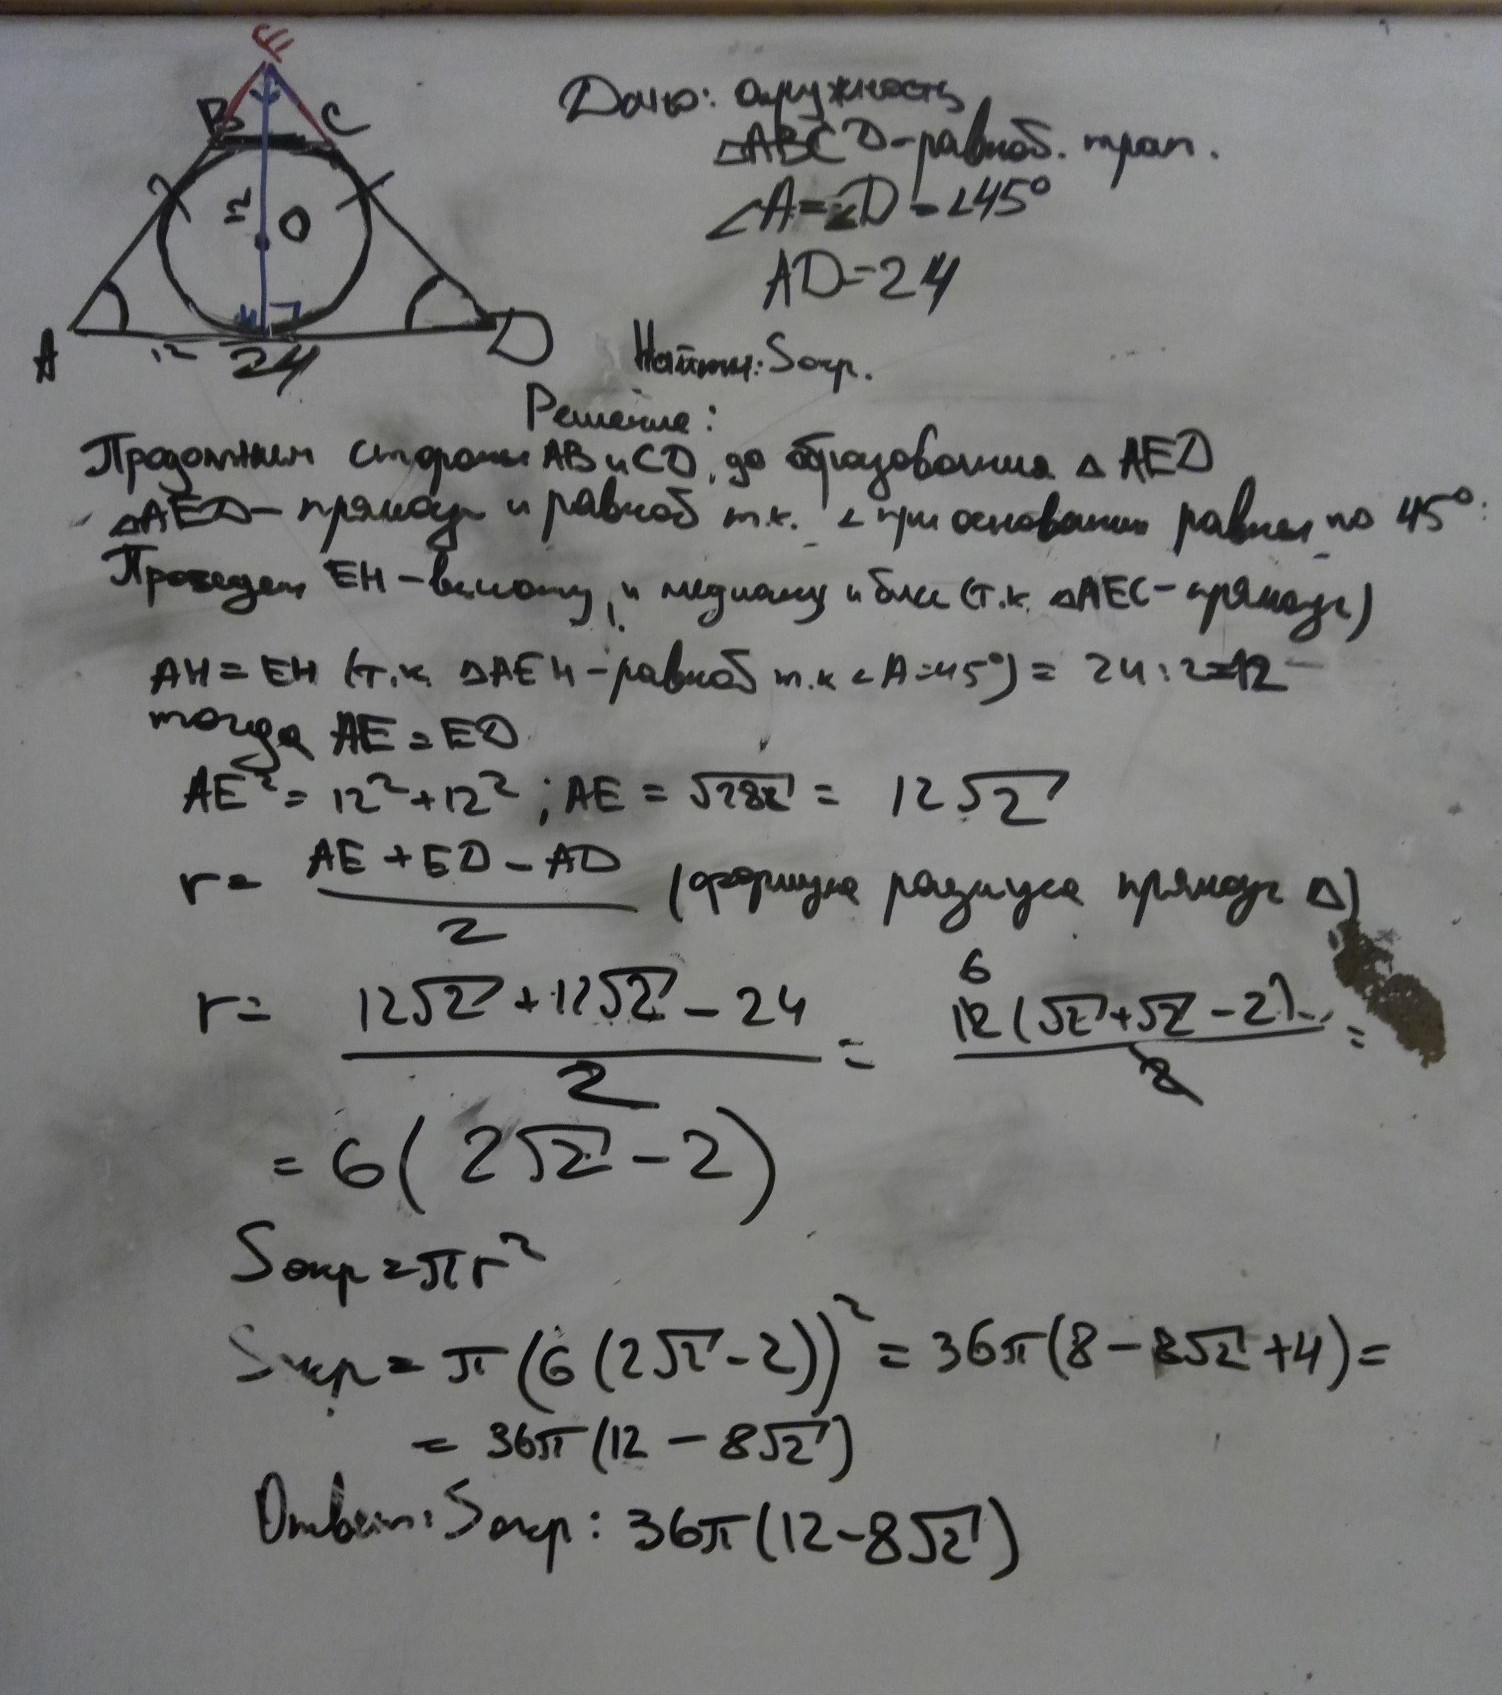 E
B C
12 O
H
A 12 24 D
Дано: окружность
△ABCD-равноб. трап.
∠A=∠D=∠45°
AD=24
Найти: Sокр.
Решение:
Продолжим стороны AB и CD, до образования △ AED
△AED- прямоуг и равноб т.к. ∠ при основании равны по 45°.
Проведем EH-высоту, и медиану и бис (т.к. △AEC-прямоуг)
AH=EH (т.к. △AEH-равноб т.к ∠A=45°) = 24:2=12
тогда AE=ED
AE²=12²+12²; AE = √288 = 12√2
r= AE+ED-AD / 2 (формула радиуса прямоуг △)
r= 12√2+12√2-24 / 2 = 6 12(√2+√2-2) / 2 =
=6(2√2-2)
Sокр=πr²
Sокр=π(6(2√2-2))²=36π(8-8√2+4)=
= 36π(12-8√2)
Ответ: Sокр: 36π(12-8√2)